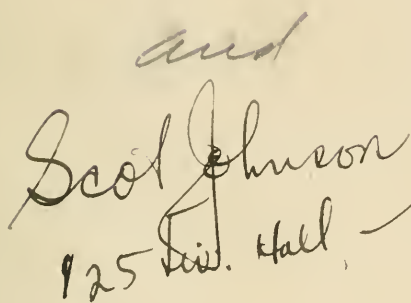 and
Scot Johnson
125 Hall,